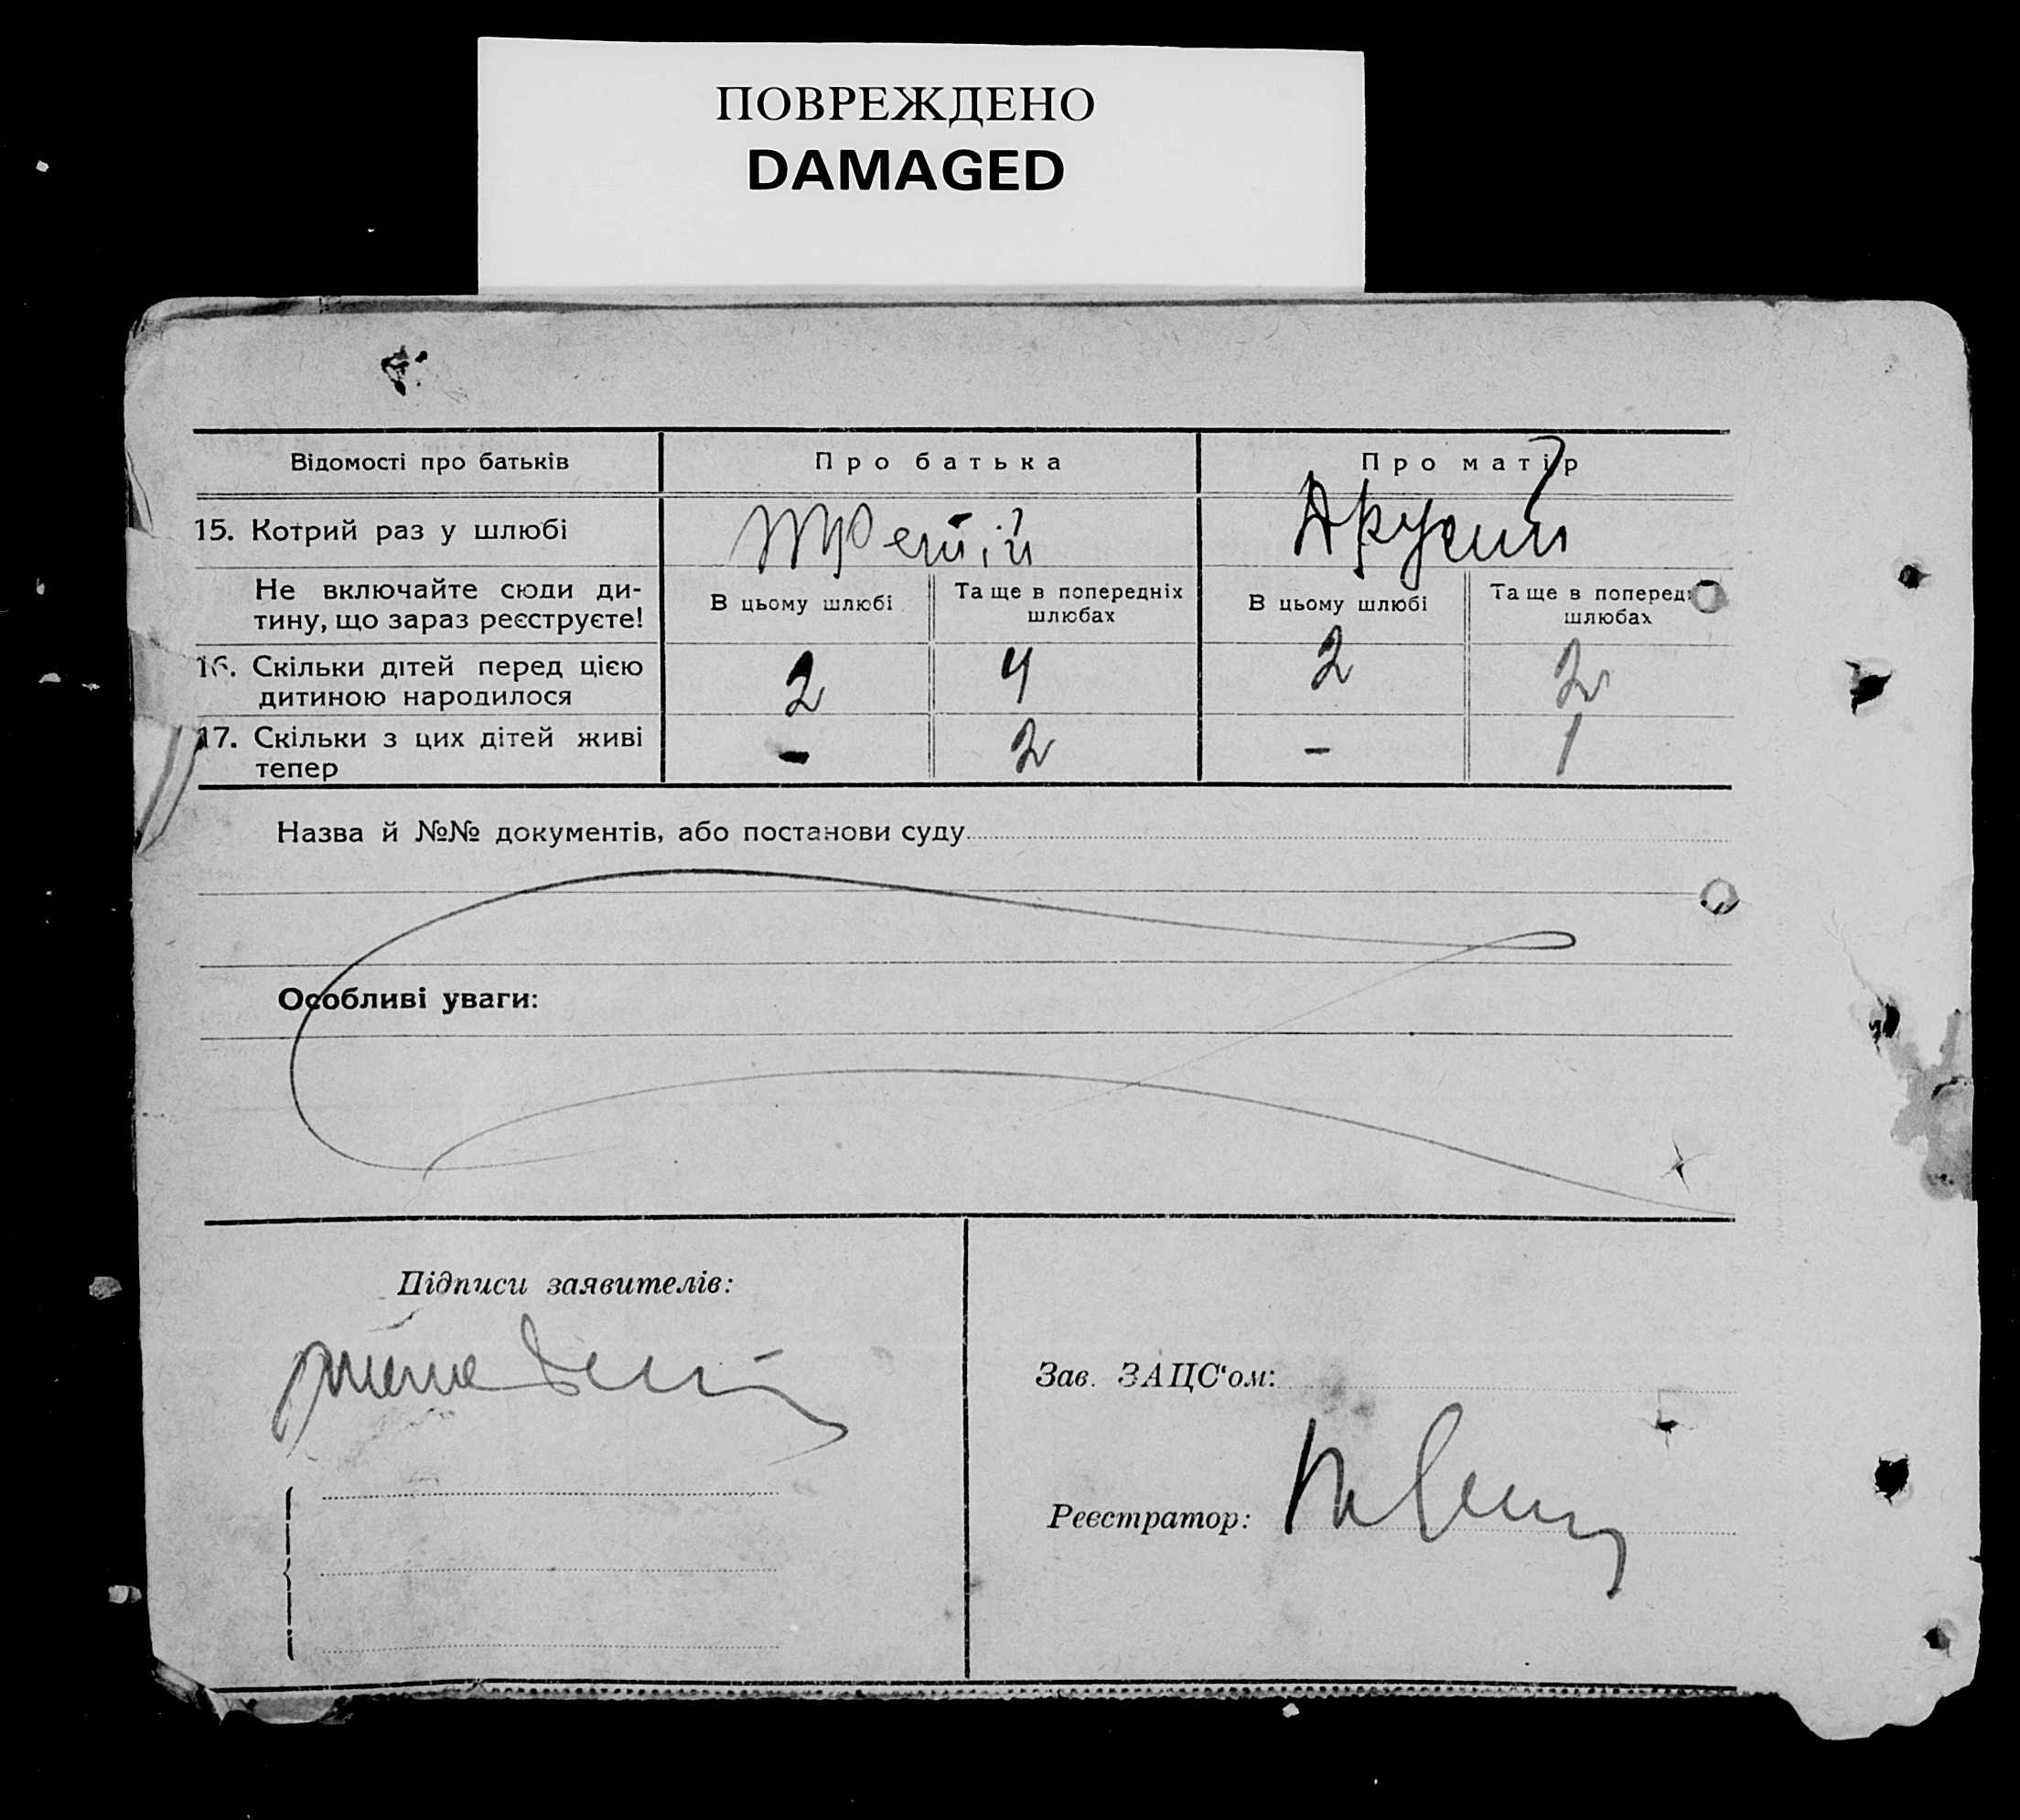 ПОВРЕЖДЕНО
DAMAGED
Відомості про батьків
Про батька
Про матір
15. Котрий раз у шлюбі
Третій
Другий
Не включайте сюди ди-
тину, що зараз реєструєте!
В цьому шлюбі
Та ще в попередніх
шлюбах
В цьому шлюбі
Та ще в поперед
шлюбах
16. Скільки дітей перед цією
дитиною народилося
2
4
2
2
17. Скільки з цих дітей живі
тепер
-
2
-
1
Назва й №№ документів, або постанови суду
Особливі уваги:
Підписи заявителів:
Зав. ЗАЦС‘ом:
Реєстратор: